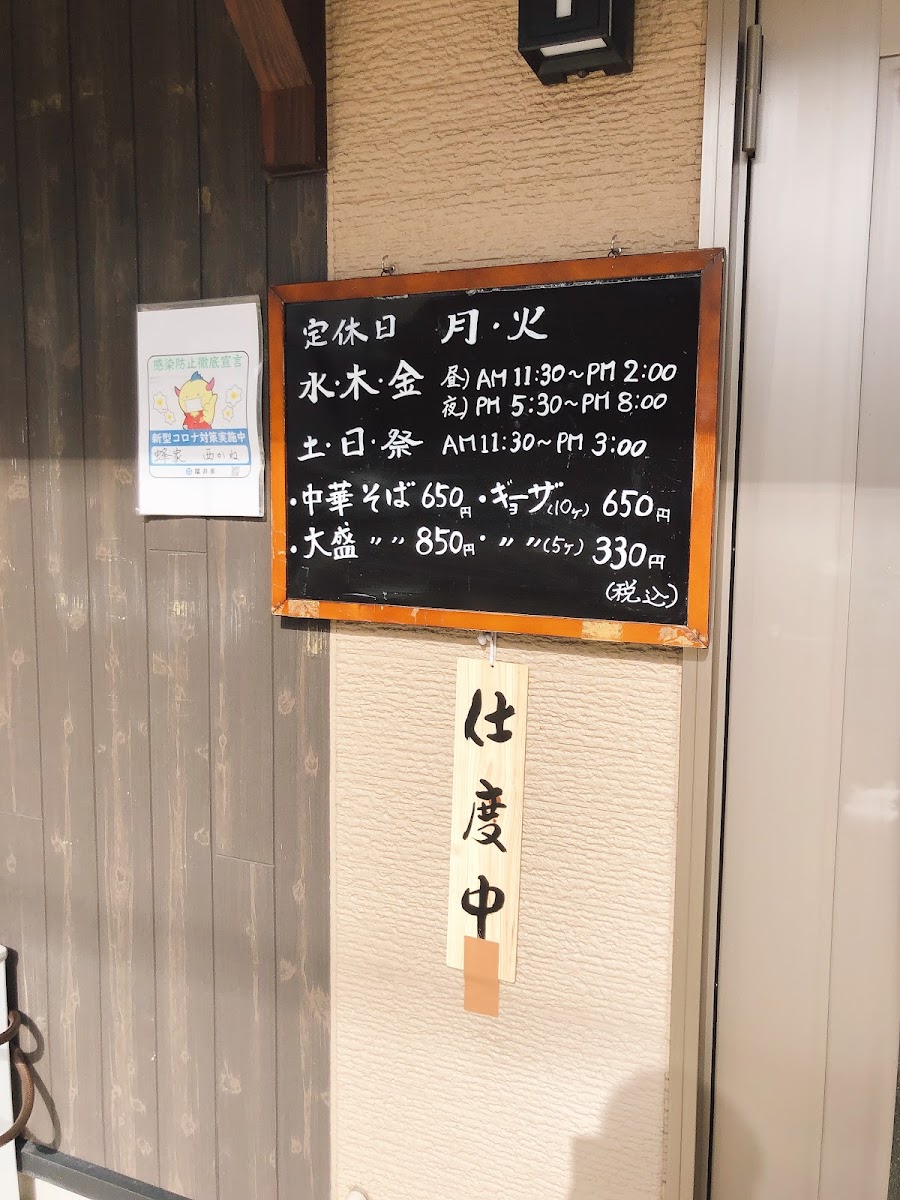 感染防止徹底宣言
新型コロナ対策実施中
蜂家 西かね
福井県
定休日 月・火
水・木・金 昼) AM 11:30～PM 2:00
夜) PM 5:30～PM 8:00
土・日・祭 AM 11:30～PM 3:00
・中華そば 650円 ・ギョーザ(10ヶ) 650円
・大盛 〃 〃 850円 ・〃 〃(5ヶ) 330円
(税込)
仕度中